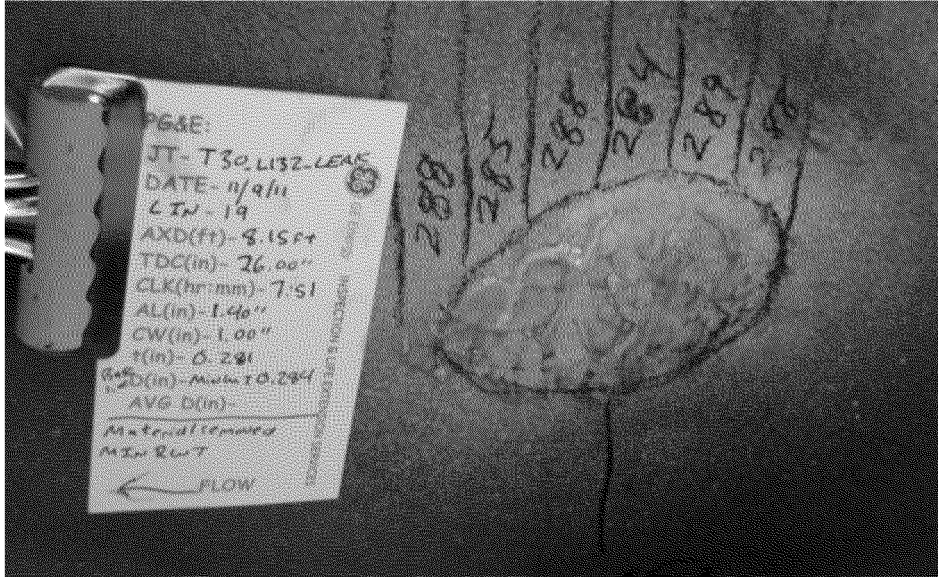 PG&E:
JT- T30_L132_LEAK
DATE- 11/9/11
LIN - 19
AXD(ft)- 8.15ft
TDC(in)- 26.00"
CLK(hr:mm)- 7:51
AL(in)- 1.40"
CW(in)- 1.00"
t(in)- 0.281
D(in)- 0.284
AVG D(in)-
Material removed
MIN RWT
← FLOW
INSPECTION & SERVICES
288
285
288
284
289
288